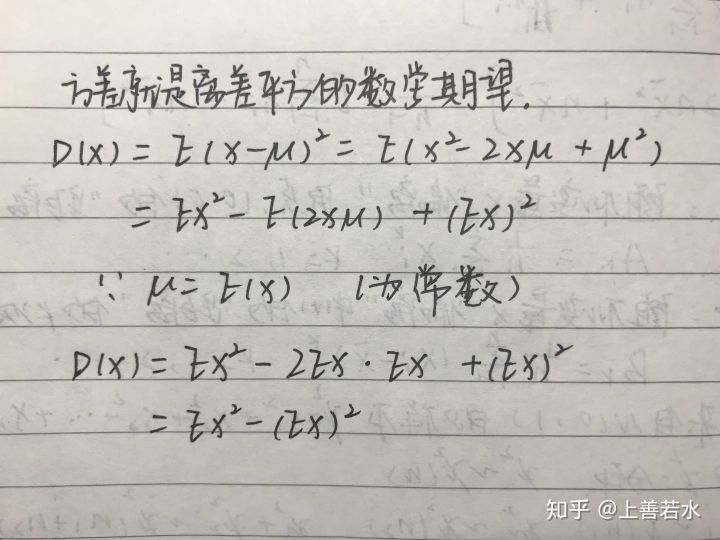 方差就是离差平方的数学期望.
D(X) = E(X-μ)² = E(X²-2Xμ + μ²)
= EX² - E(2Xμ) + (EX)²
∵ μ = E(X) (为常数)
D(X) = EX² - 2EX · EX + (EX)²
= EX² - (EX)²
知乎 @上善若水